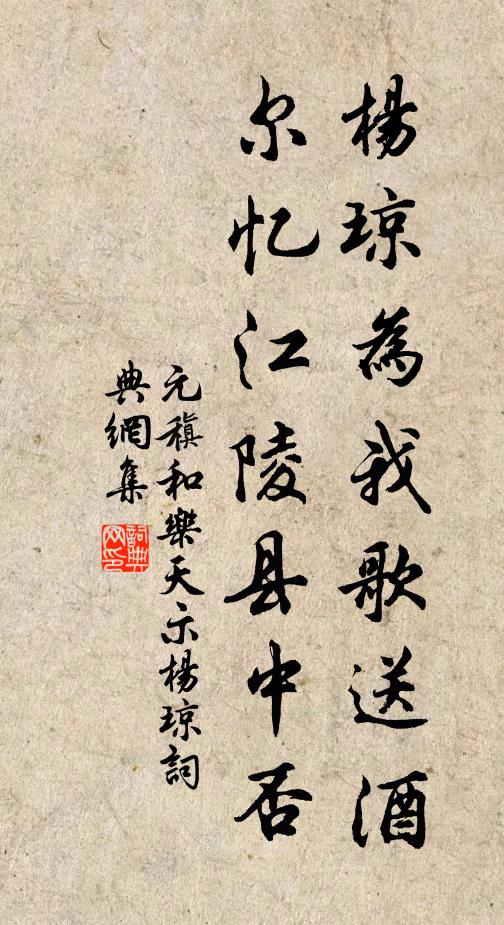 楊琼為我歌送酒
尔忆江陵县中否
元稹和樂天示楊琼詞
典網集
詞典网印